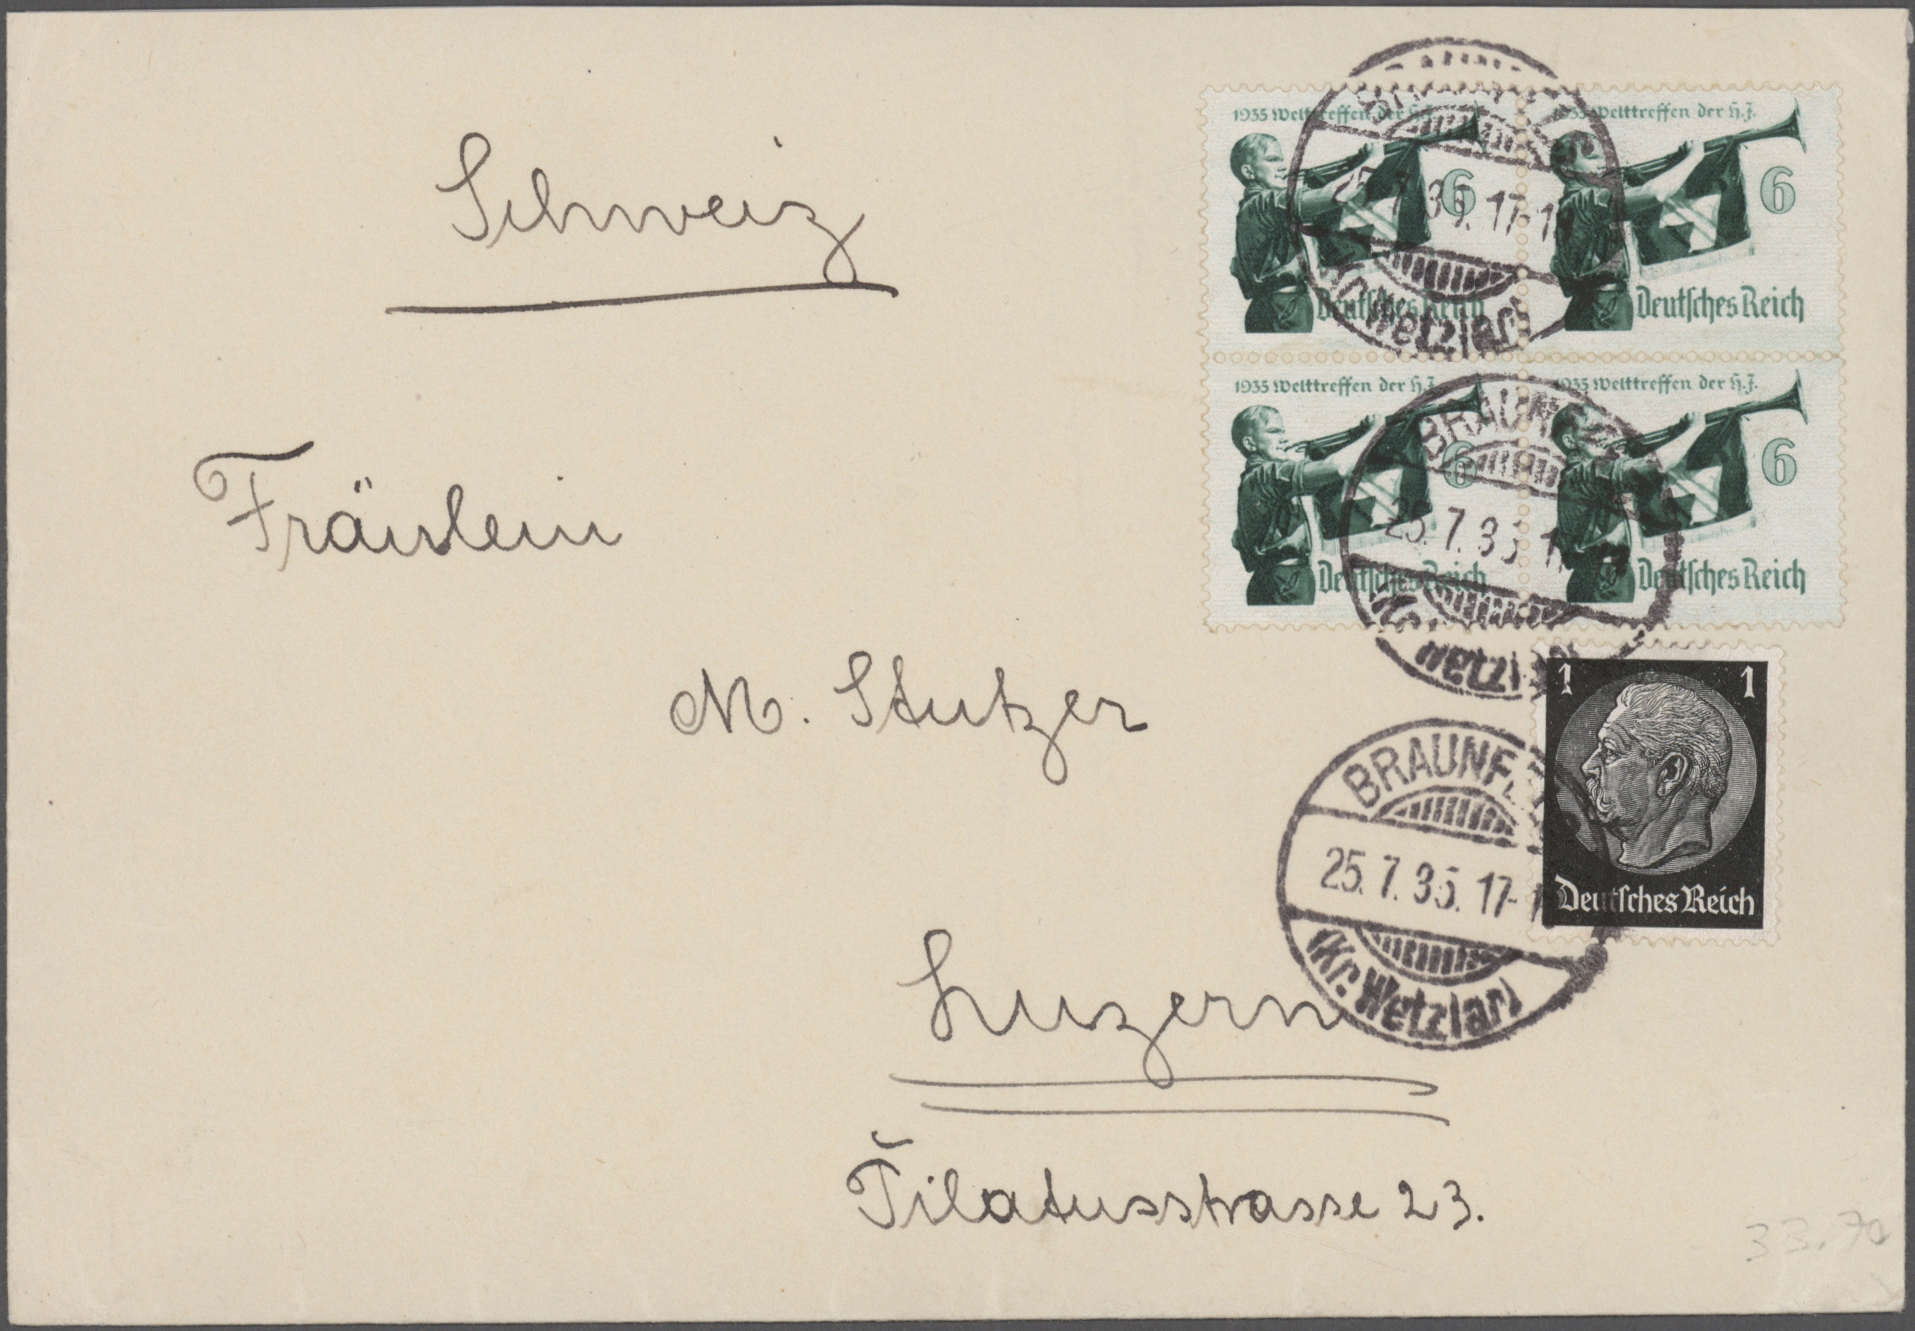 Schweiz
Fräulein
M. Stutzer
Luzern
Pilatusstrasse 23.
1935 Welttreffen der H.J.
6
Deutsches Reich
1935 Welttreffen der H.J.
6
Deutsches Reich
1935 Welttreffen der H.J.
6
Deutsches Reich
1935 Welttreffen der H.J.
6
Deutsches Reich
25.7.35. 17-1
(Kr. Wetzlar)
BRAUNF
25.7.35 1
(Kr. Wetzlar)
1 1
Deutsches Reich
BRAUNFE
25.7.35. 17-1
(Kr. Wetzlar)
33.70